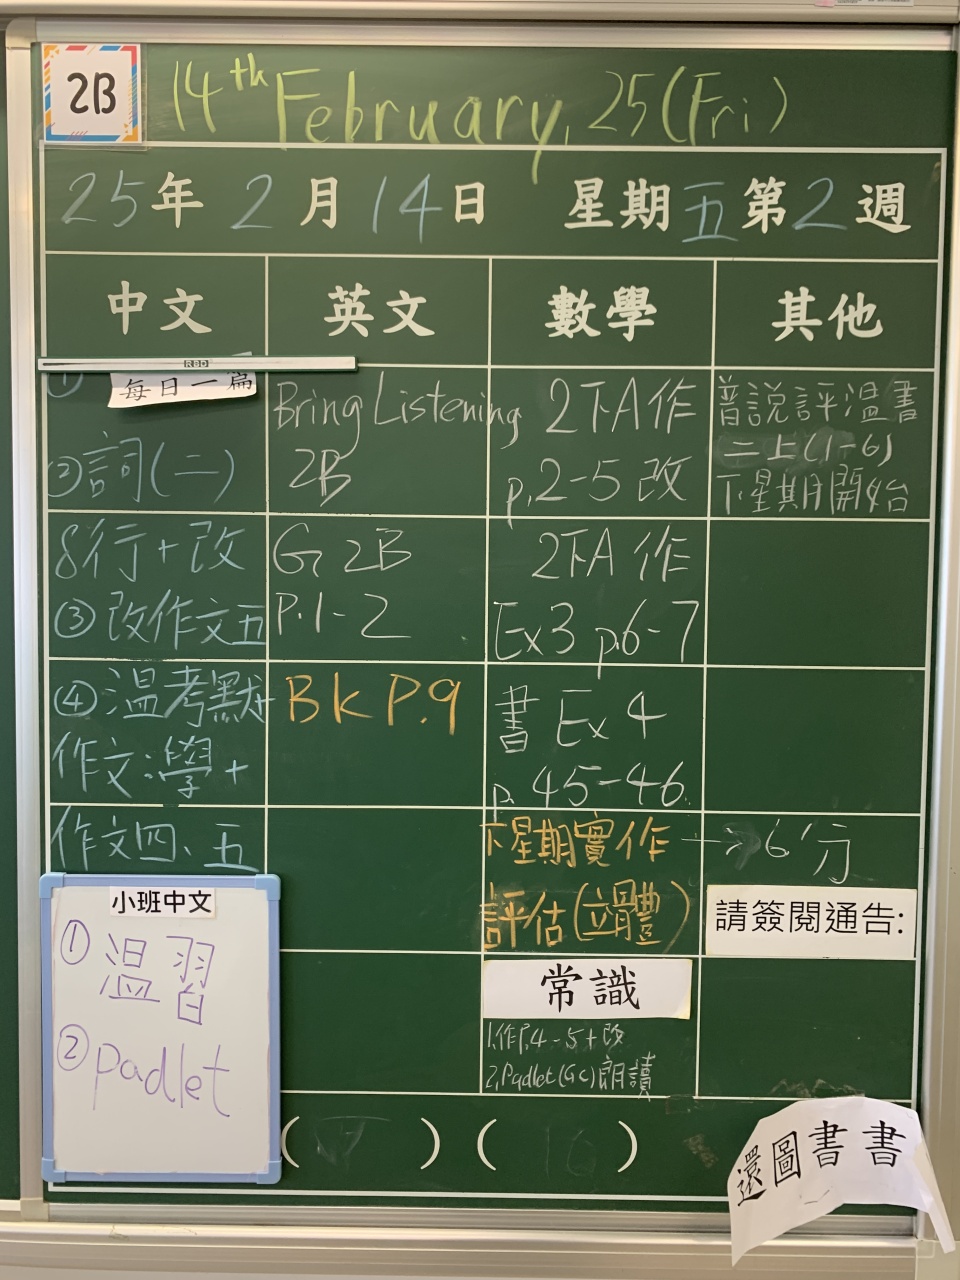 2B
14th February, 25 (Fri)
25年2月14日 星期五第2週
中文 英文 數學 其他
RBD
① 每日一篇
②詞(二)
8行+改
③改作文五
④溫考默
作文:學+
作文四、五
小班中文
①溫習
②Padlet
Bring Listening
2B
G 2B
P.1-2
BK P.9
2下A作
p.2-5改
2下A作
Ex3 p.6-7
書 Ex 4
p.45-46
下星期實作 → 6分
評估(立體)
常識
1.作P.4-5+改
2.Padlet(GC)朗讀
普說評溫書
二上(1-6)
下星期開始
請簽閱通告:
還圖書書
( ) ( 16 )